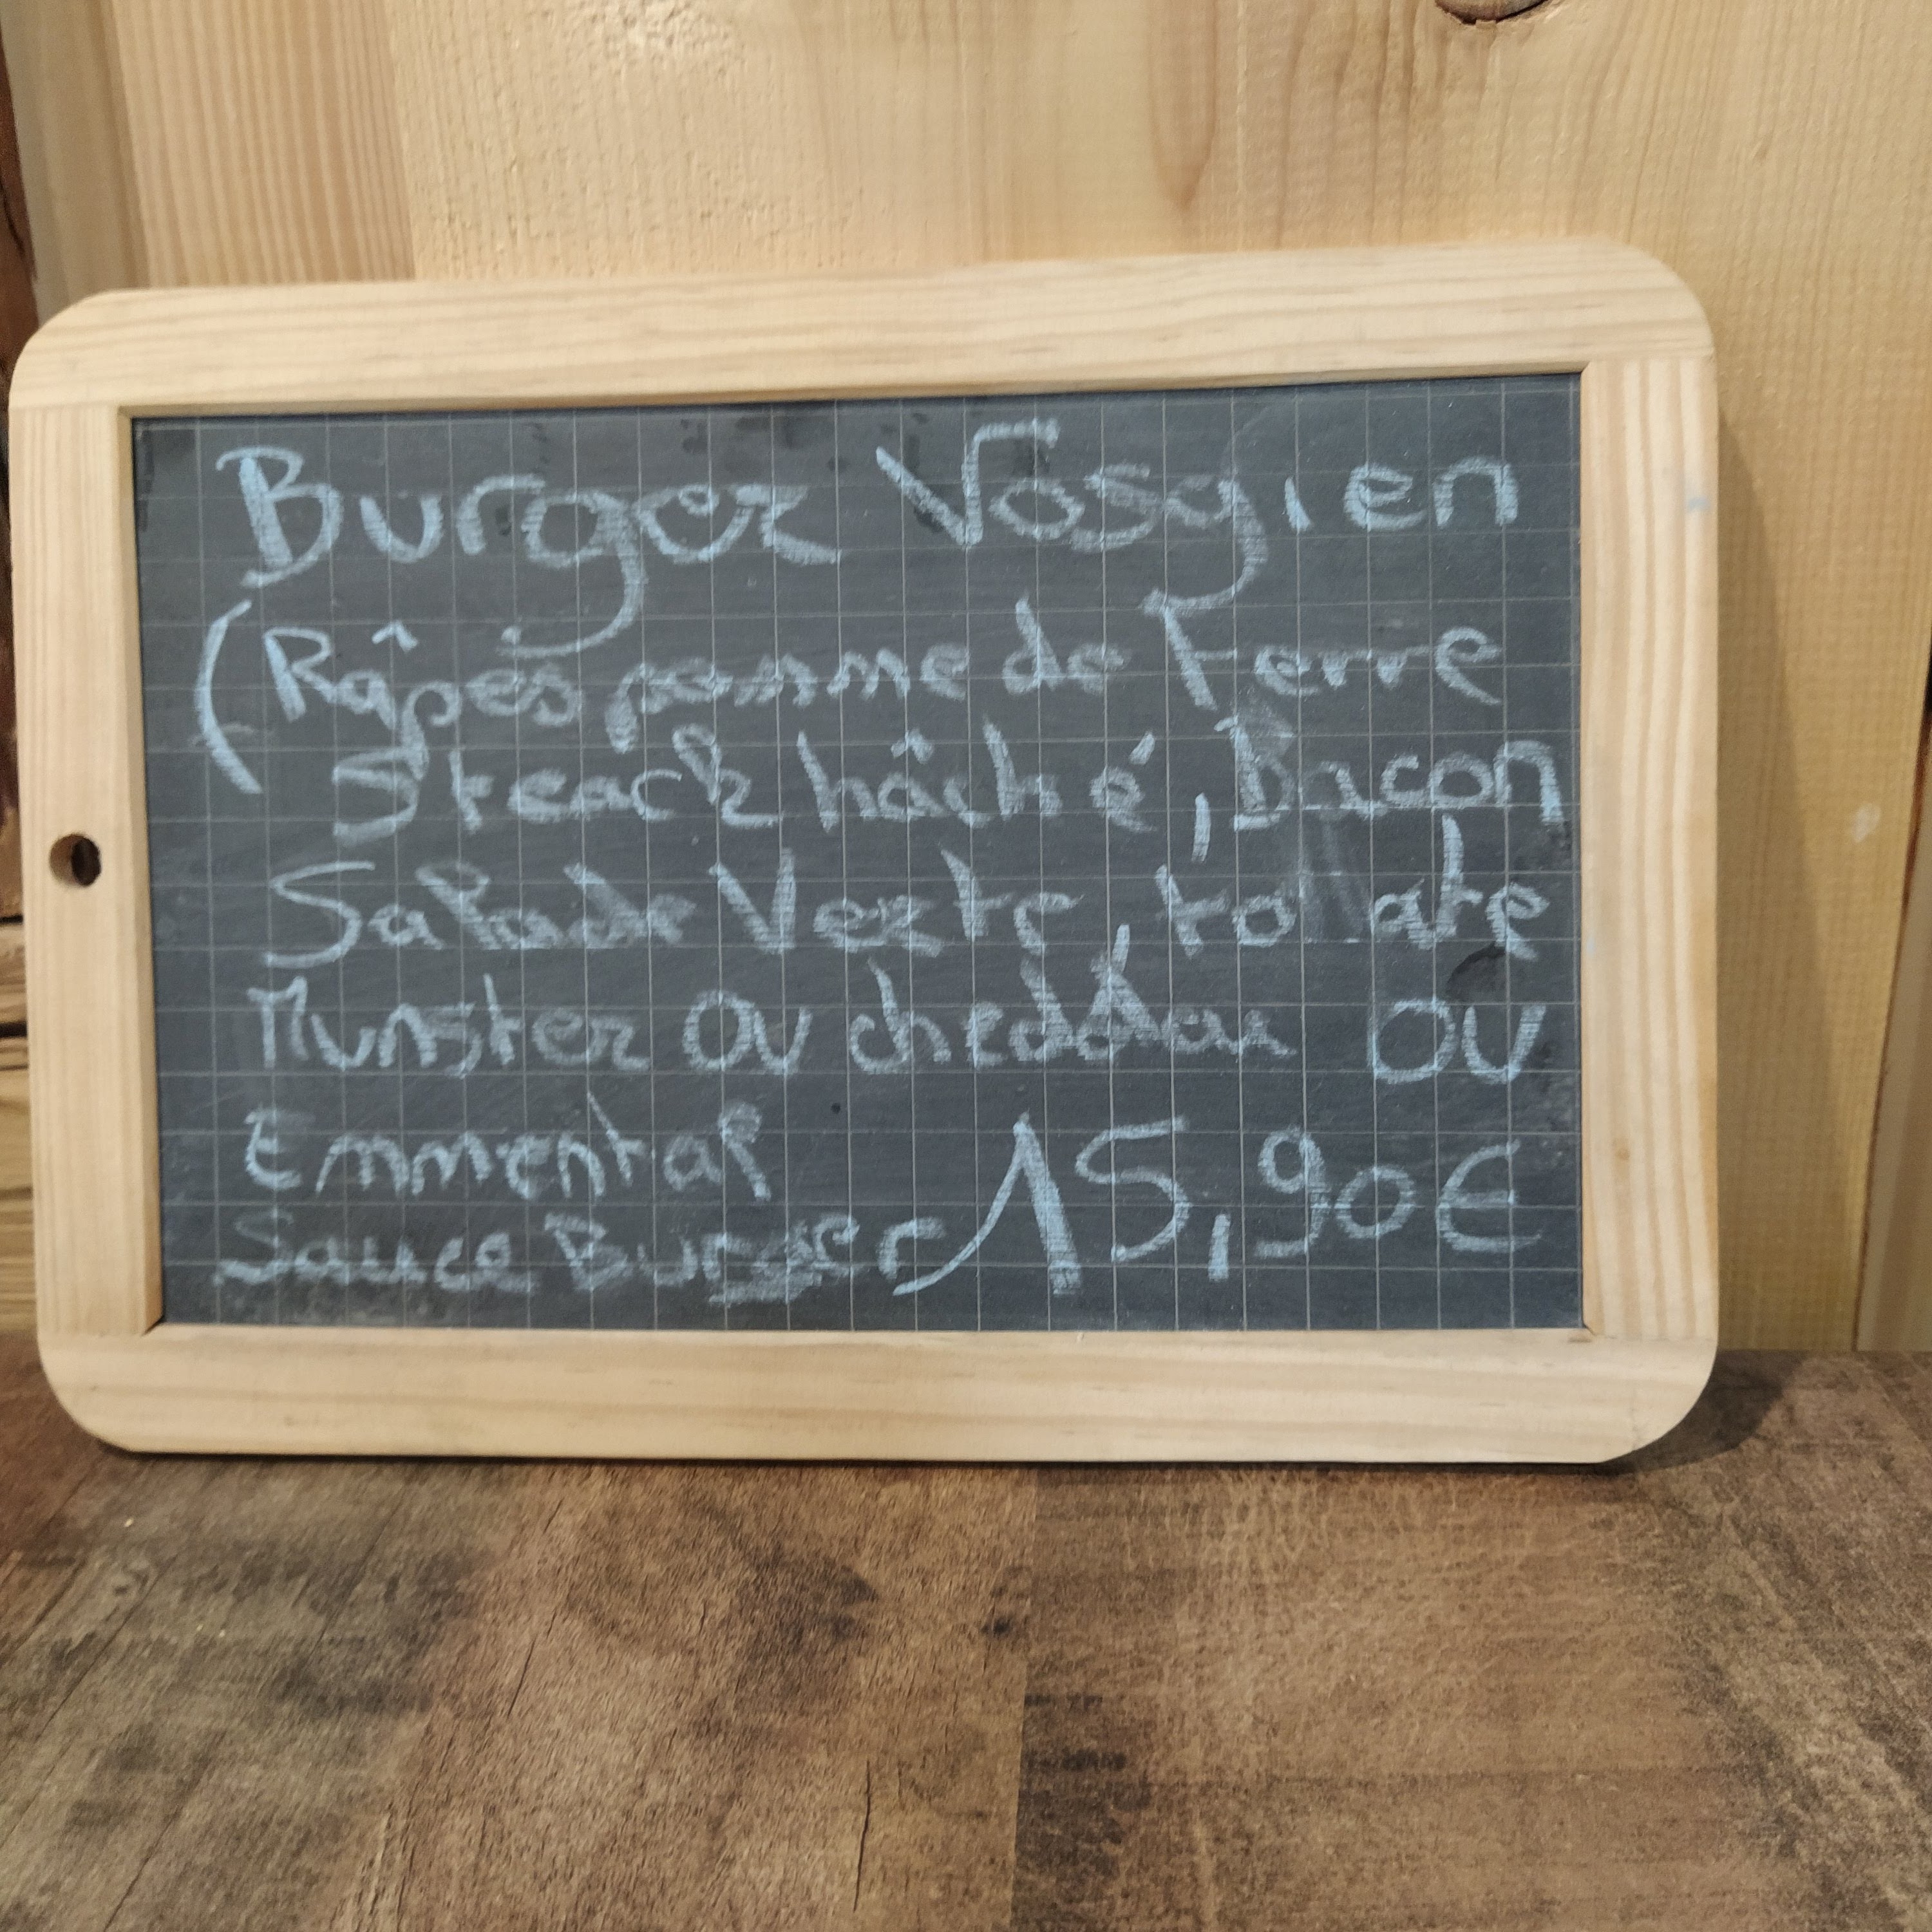 Burger Vosgien
(Râpés pomme de Terre
Steack hâché, Bacon
Salade Verte, tomate
Munster ou cheddar ou
Emmental
Sauce Burger 15,90€